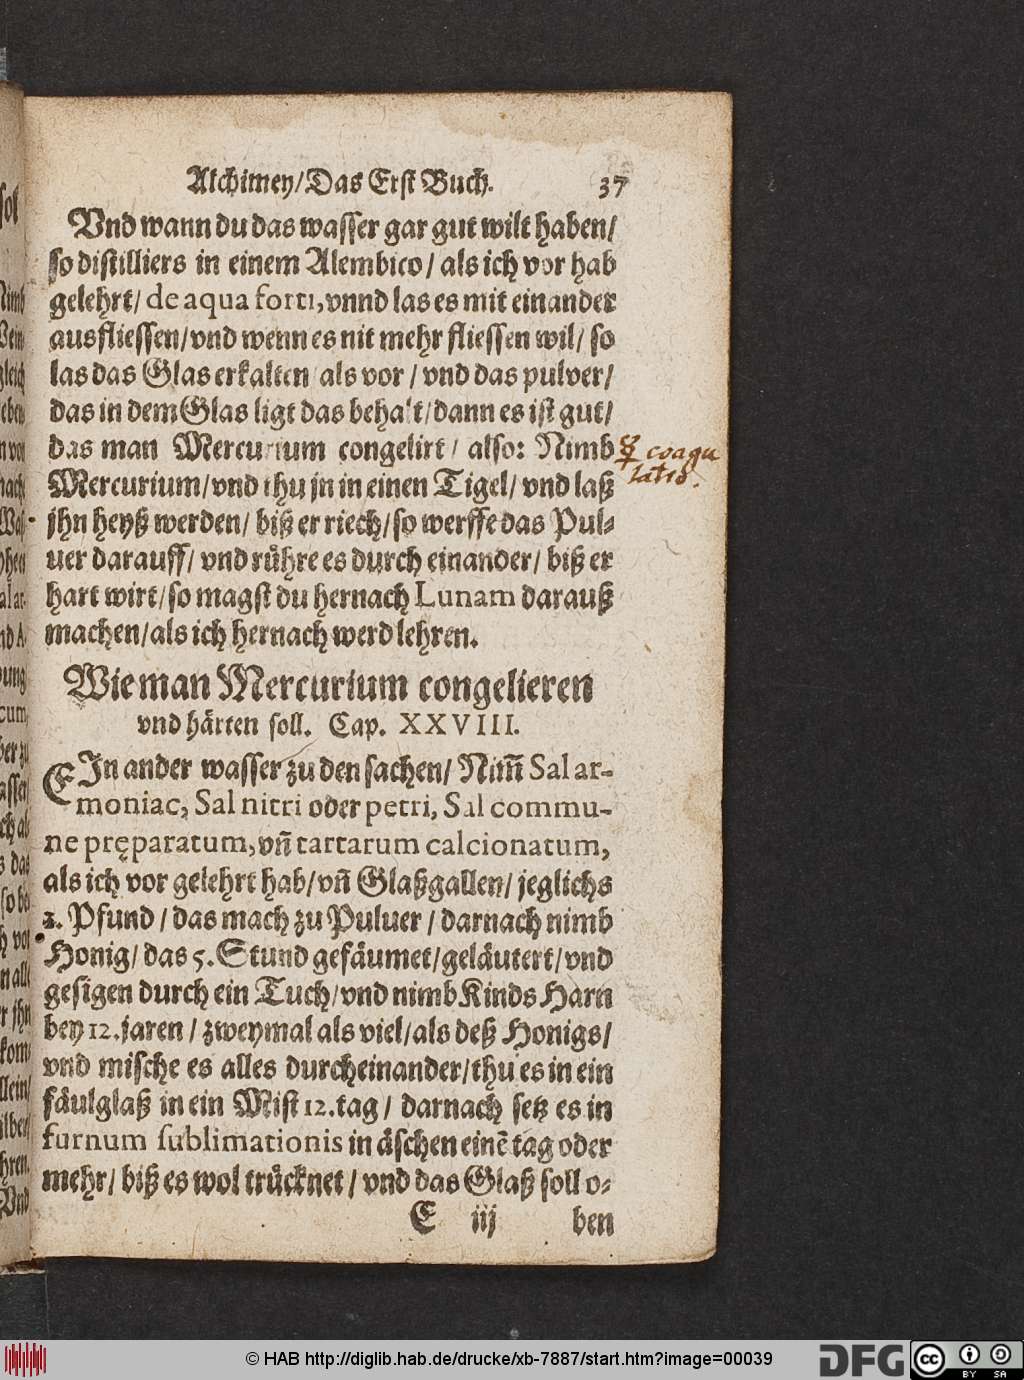 Alchimey/Das Erst Buch. 37
Vnd wann du das wasser gar gut wilt haben/
so distilliers in einem Alembico/ als ich vor hab
gelehrt/ de aqua forti, vnnd las es mit einander
ausfliessen/vnd wenn es nit mehr fliessen wil/ so
las das Glas erkalten als vor / vnd das pulver/
das in dem Glas ligt das behalt/dann es ist gut/
das man Mercurium congelirt/ also: Nimb
☿ coagu
latio.
Mercurium/vnd thu jn in einen Tigel/ vnd laß
jhn heyß werden/ biß er riech/so werffe das Pul-
uer darauff/ vnd rühre es durch einander/ biß er
hart wirt/so magst du hernach Lunam darauß
machen/als ich hernach werd lehren.
Wie man Mercurium congelieren
vnd härten soll. Cap. XXVIII.
EIn ander wasser zu den sachen/ Nim̃ Sal ar-
moniac, Sal nitri oder petri, Sal commu-
ne pręparatum, vñ tartarum calcionatum,
als ich vor gelehrt hab/vñ Glaßgallen/ jeglichs
2. Pfund / das mach zu Puluer / darnach nimb
Honig/ das 5. Stund gefäumet/geläutert/vnd
gesigen durch ein Tuch/vnd nimb Kinds Harn
bey 12. jaren / zweymal als viel/als deß Honigs/
vnd mische es alles durcheinander/thu es in ein
fäulglaß in ein Mist 12. tag/ darnach setz es in
furnum sublimationis in äschen einẽ tag oder
mehr/ biß es wol trücknet / vnd das Glaß soll o-
E iij ben
© HAB http://diglib.hab.de/drucke/xb-7887/start.htm?image=00039
DFG
cc BY SA